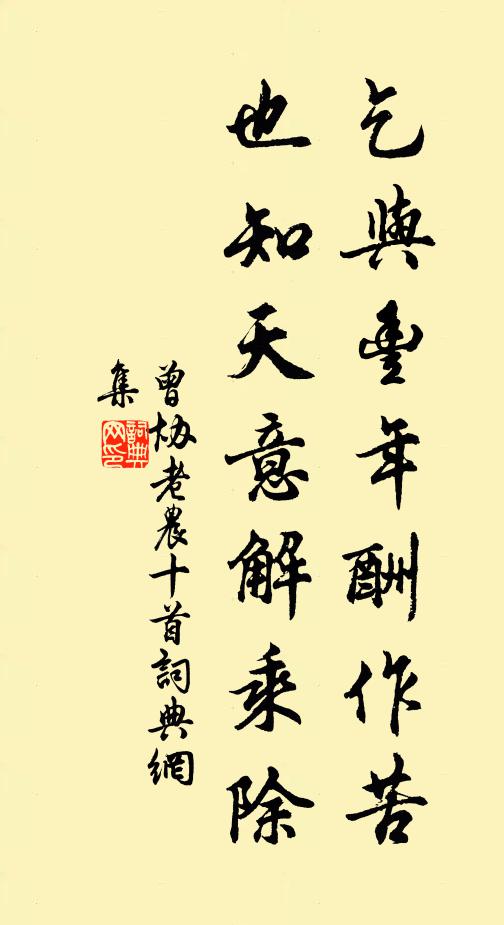 乞與豐年酬作苦
也知天意解乘除
曾協老農十首詞典網
集
詞典網印